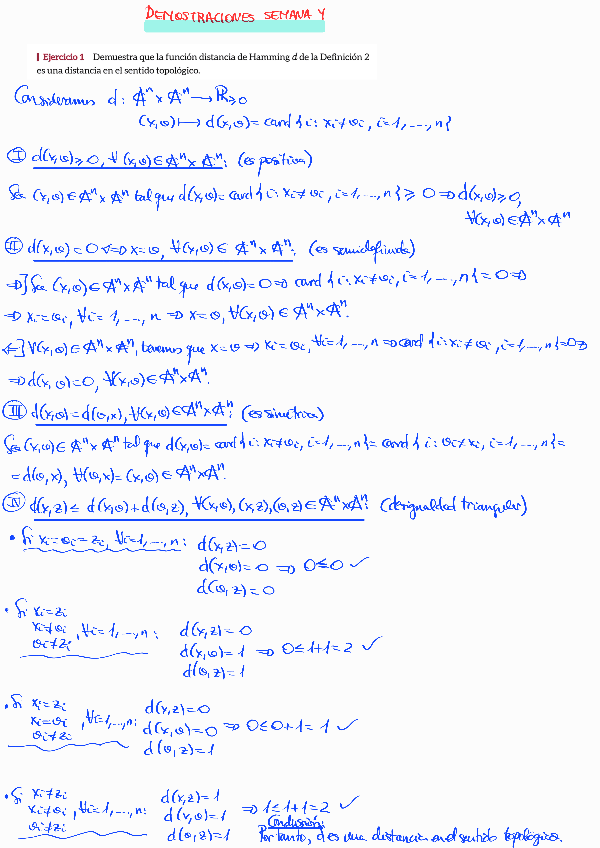 DEMOSTRACIONES SEMANA 4
Ejercicio 1 Demuestra que la función distancia de Hamming d de la Definición 2
es una distancia en el sentido topológico.
Consideramos d: Aⁿ × Aⁿ → ℝ≥0
(x,v) ↦ d(x,v) = card{i: xᵢ≠vᵢ, i=1,...,n}
Ⓘ d(x,v)≥0, ∀(x,v)∈Aⁿ×Aⁿ: (es positiva)
Sea (x,v)∈Aⁿ×Aⁿ tal que d(x,v)=card{i: xᵢ≠vᵢ, i=1,...,n}≥0 ⇒ d(x,v)≥0,
∀(x,v)∈Aⁿ×Aⁿ
Ⅱ d(x,v)=0 ⇔ x=v, ∀(x,v)∈Aⁿ×Aⁿ: (es semidefinida)
⇒] Sea (x,v)∈Aⁿ×Aⁿ tal que d(x,v)=0 ⇒ card{i: xᵢ≠vᵢ, i=1,...,n}=0 ⇒
⇒ xᵢ=vᵢ, ∀i=1,...,n ⇒ x=v, ∀(x,v)∈Aⁿ×Aⁿ.
⇐] ∀(x,v)∈Aⁿ×Aⁿ, tenemos que x=v ⇒ xᵢ=vᵢ, ∀i=1,...,n ⇒ card{i: xᵢ≠vᵢ, i=1,...,n}=0 ⇒
⇒ d(x,v)=0, ∀(x,v)∈Aⁿ×Aⁿ.
Ⅲ d(x,v)=d(v,x), ∀(x,v)∈Aⁿ×Aⁿ: (es simétrica)
Sea (x,v)∈Aⁿ×Aⁿ tal que d(x,v)=card{i: xᵢ≠vᵢ, i=1,...,n}=card{i: vᵢ≠xᵢ, i=1,...,n}=
=d(v,x), ∀(v,x)=(x,v)∈Aⁿ×Aⁿ.
Ⅳ d(x,z)≤d(x,v)+d(v,z), ∀(x,v),(x,z),(v,z)∈Aⁿ×Aⁿ: (desigualdad triangular)
• Si xᵢ=vᵢ=zᵢ, ∀i=1,...,n: d(x,z)=0
d(x,v)=0 ⇒ 0≤0 ✓
d(v,z)=0
• Si xᵢ=zᵢ
xᵢ≠vᵢ, ∀i=1,...,n: d(x,z)=0
vᵢ≠zᵢ d(x,v)=1 ⇒ 0≤1+1=2 ✓
d(v,z)=1
• Si xᵢ=zᵢ d(x,z)=0
xᵢ=vᵢ, ∀i=1,...,n: d(x,v)=0 ⇒ 0≤0+1=1 ✓
vᵢ≠zᵢ d(v,z)=1
• Si xᵢ≠zᵢ d(x,z)=1
xᵢ≠vᵢ, ∀i=1,...,n: d(x,v)=1 ⇒ 1≤1+1=2 ✓
vᵢ≠zᵢ d(v,z)=1
Conclusión:
Por tanto, d es una distancia en el sentido topológico.